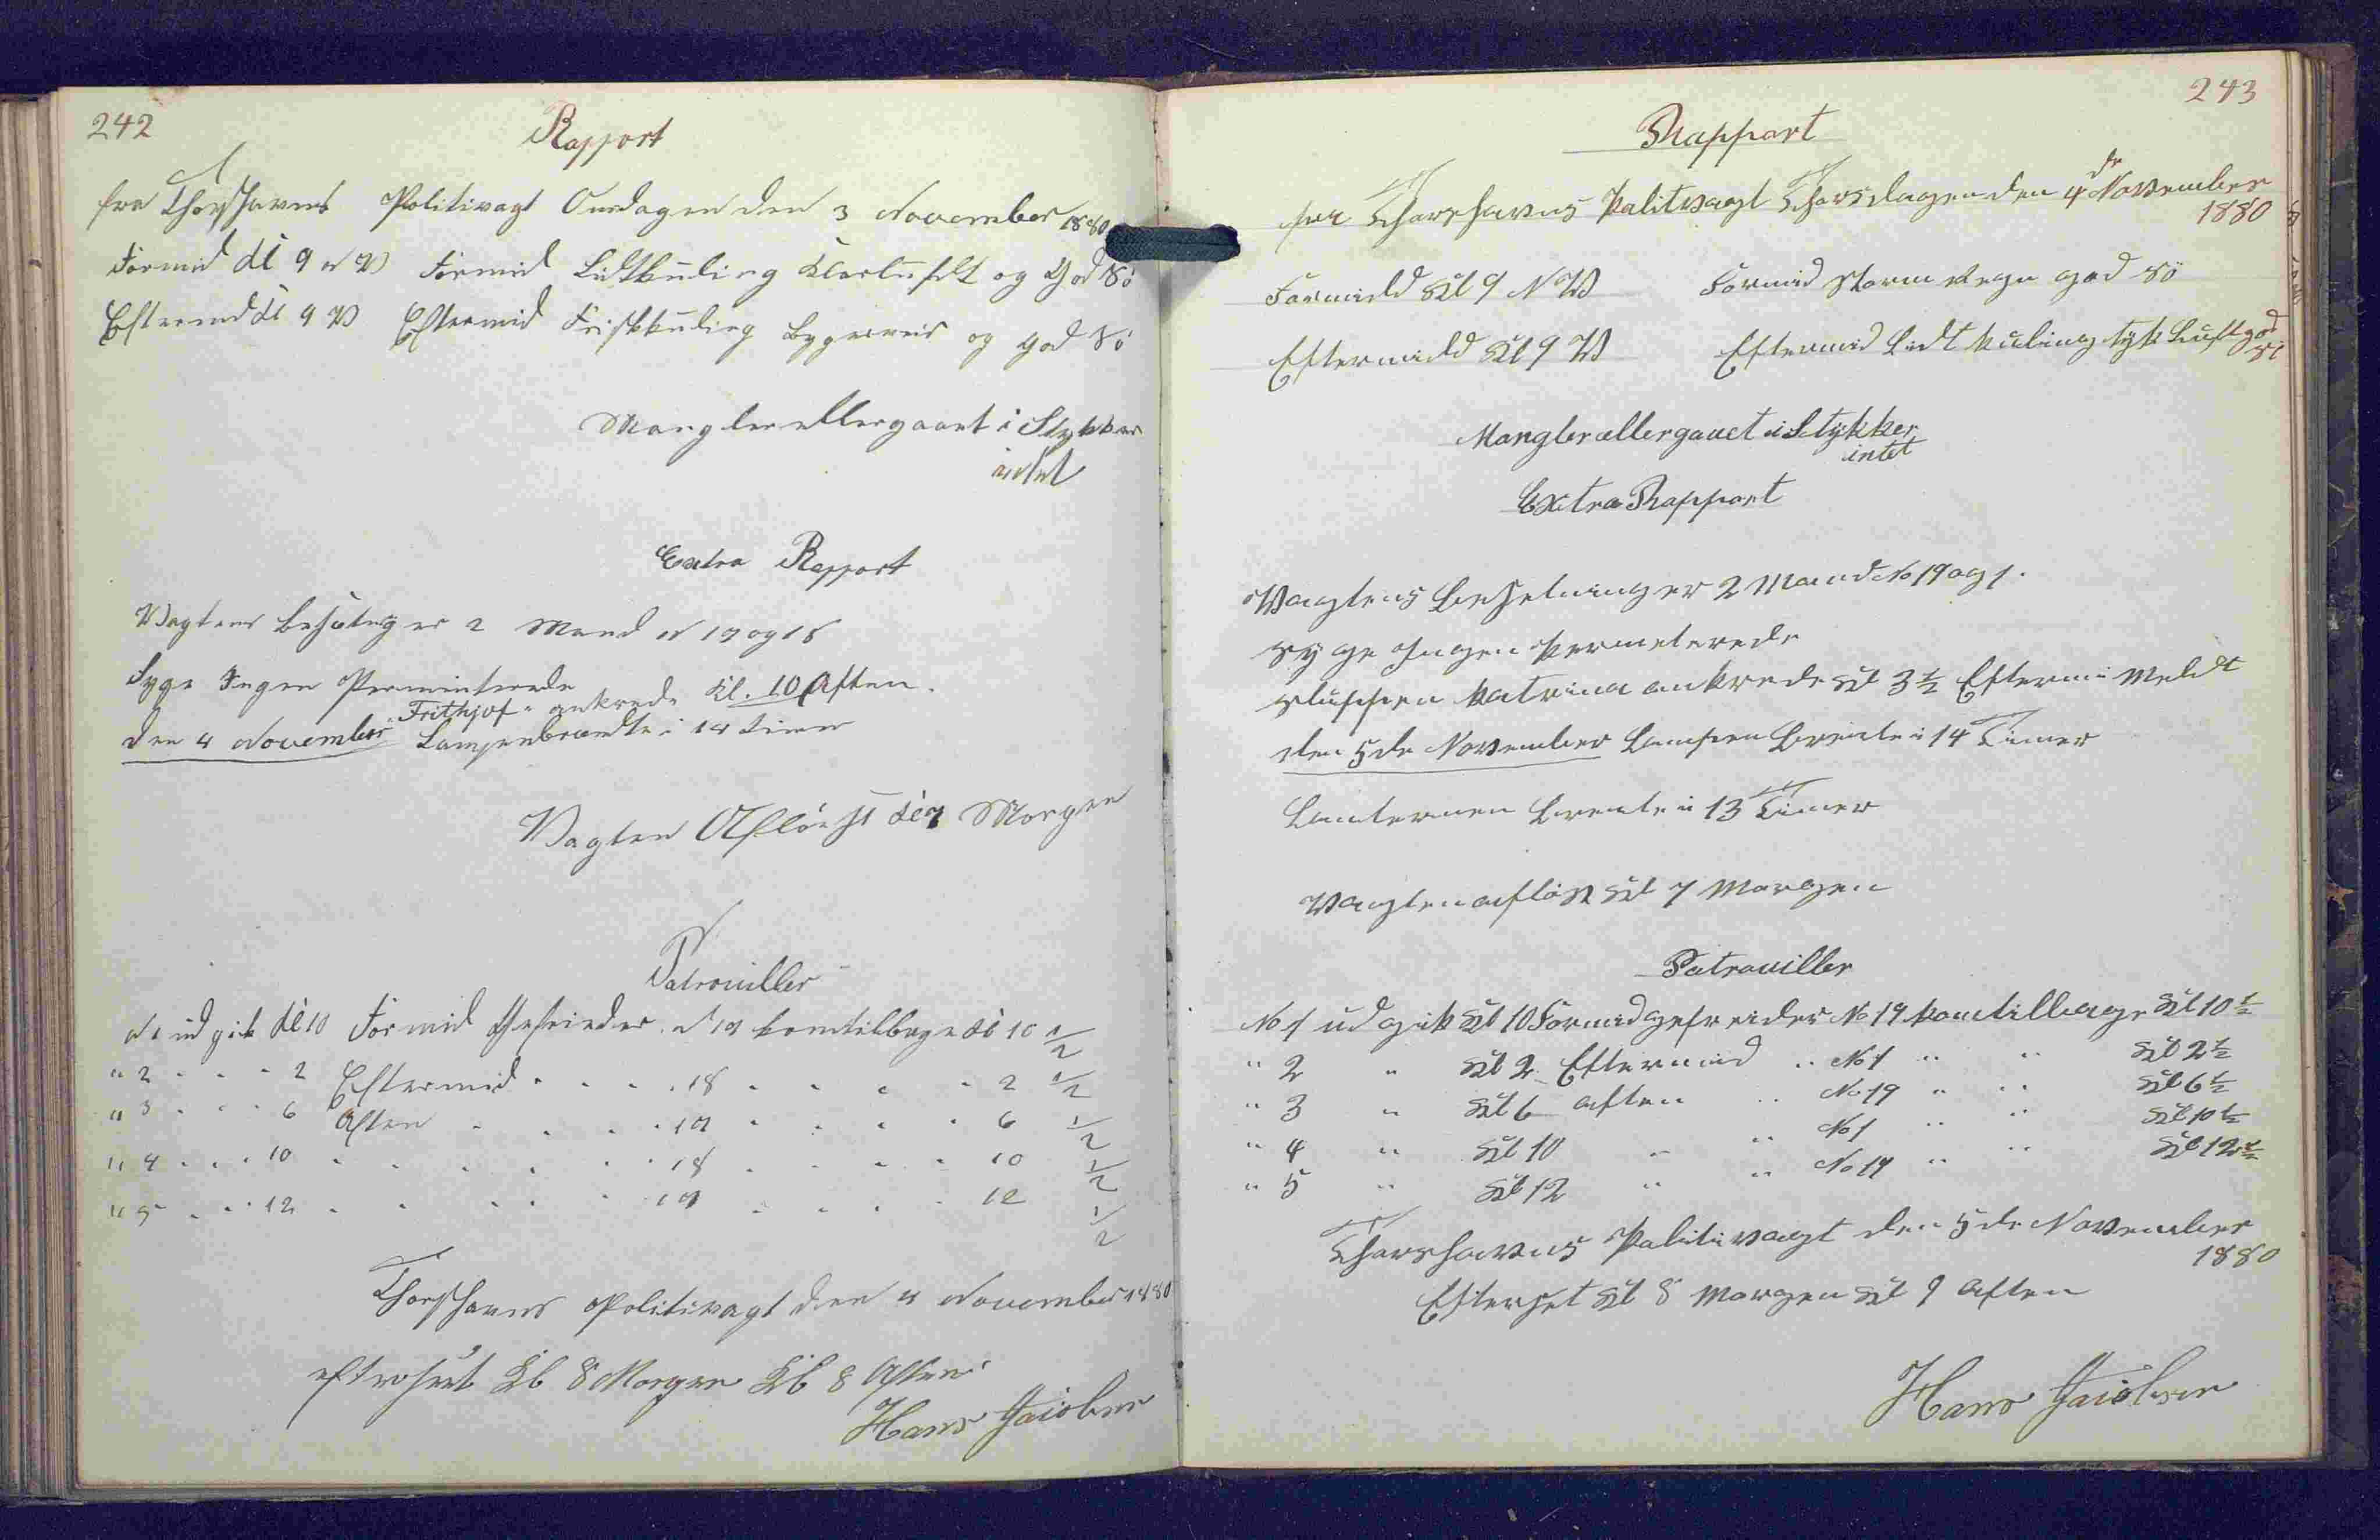 242
Rapport
fra Thorshavns Politivagt Onsdagen den 3 November 1880
Formid Kl 9 N V Formid Lidtkuling Klarluft og God Sö
Eftermd Kl 9 V Eftermid Friskkuling Bygeveir og god Sö
Mangler ellergaaet i Stykker
intet
Extra Rapport
Vagtens Besætng er 2 Mand N 19 og 18
Syge Ingen Permiterede
"Frithjof" ankrede Kl. 10 Aften.
den 4 November Lampenbrændte i 14 Timer
Vagten Aflöist Kl 7 Morgen
Patrouiller
N 1 udgik Kl 10 Formid Gefreider N 19 komtilbage Kl 10 1/2
" 2 " " " 2 Eftermid " " " 18 " " " " 2 1/2
" 3 " " " 6 Aften " " " " 19 " " " " 6 1/2
" 4 " " " 10 " " " " " 18 " " " " 10 1/2
" 5 " " " 12 " " " " " 19 " " " " 12 1/2
Thorshavns Politivagt den 4 November 1880
efterseet Kl 8 Morgen Kl 8 Aften
Hans Jacobsen
243
Rappart
fra Thorshavns Palitivagt Thorsdagen den 4de November
1880
Formidd Kl 9 N V Formid Storm Regn god Sö
Eftermidd Kl 9 V Eftermid Lidt kuling tyk Luft god
Sö
Mangler ellergaaet i Stykker
intet
Extra Rappart
Vagtens Besetninger 2 Mand No 19 og 1.
Syge Ingen Permeterede
Sluppen Katrina ankrede Kl 3 1/2 Eftermi Meldt
den 5de November Lampen Brente i 14 Timer
Lanternen Brente i 13 Timer
Vagten aflöst Kl 7 Morgen
Patrouiller
No 1 udgik Kl 10 Formid gefreider No 19 kom tilbage Kl 10 1/2
" 2 " Kl 2 Eftermid " No 1 " " Kl 2 1/2
" 3 " Kl 6 aften " No 19 " " Kl 6 1/2
" 4 " Kl 10 " " No 1 " " Kl 10 1/2
" 5 " Kl 12 " " No 19 " " Kl 12 1/2
Thorshavns Palitivagt den 5de November
1880
Efterset Kl 8 Morgen Kl 9 Aften
Hans Jacobsen